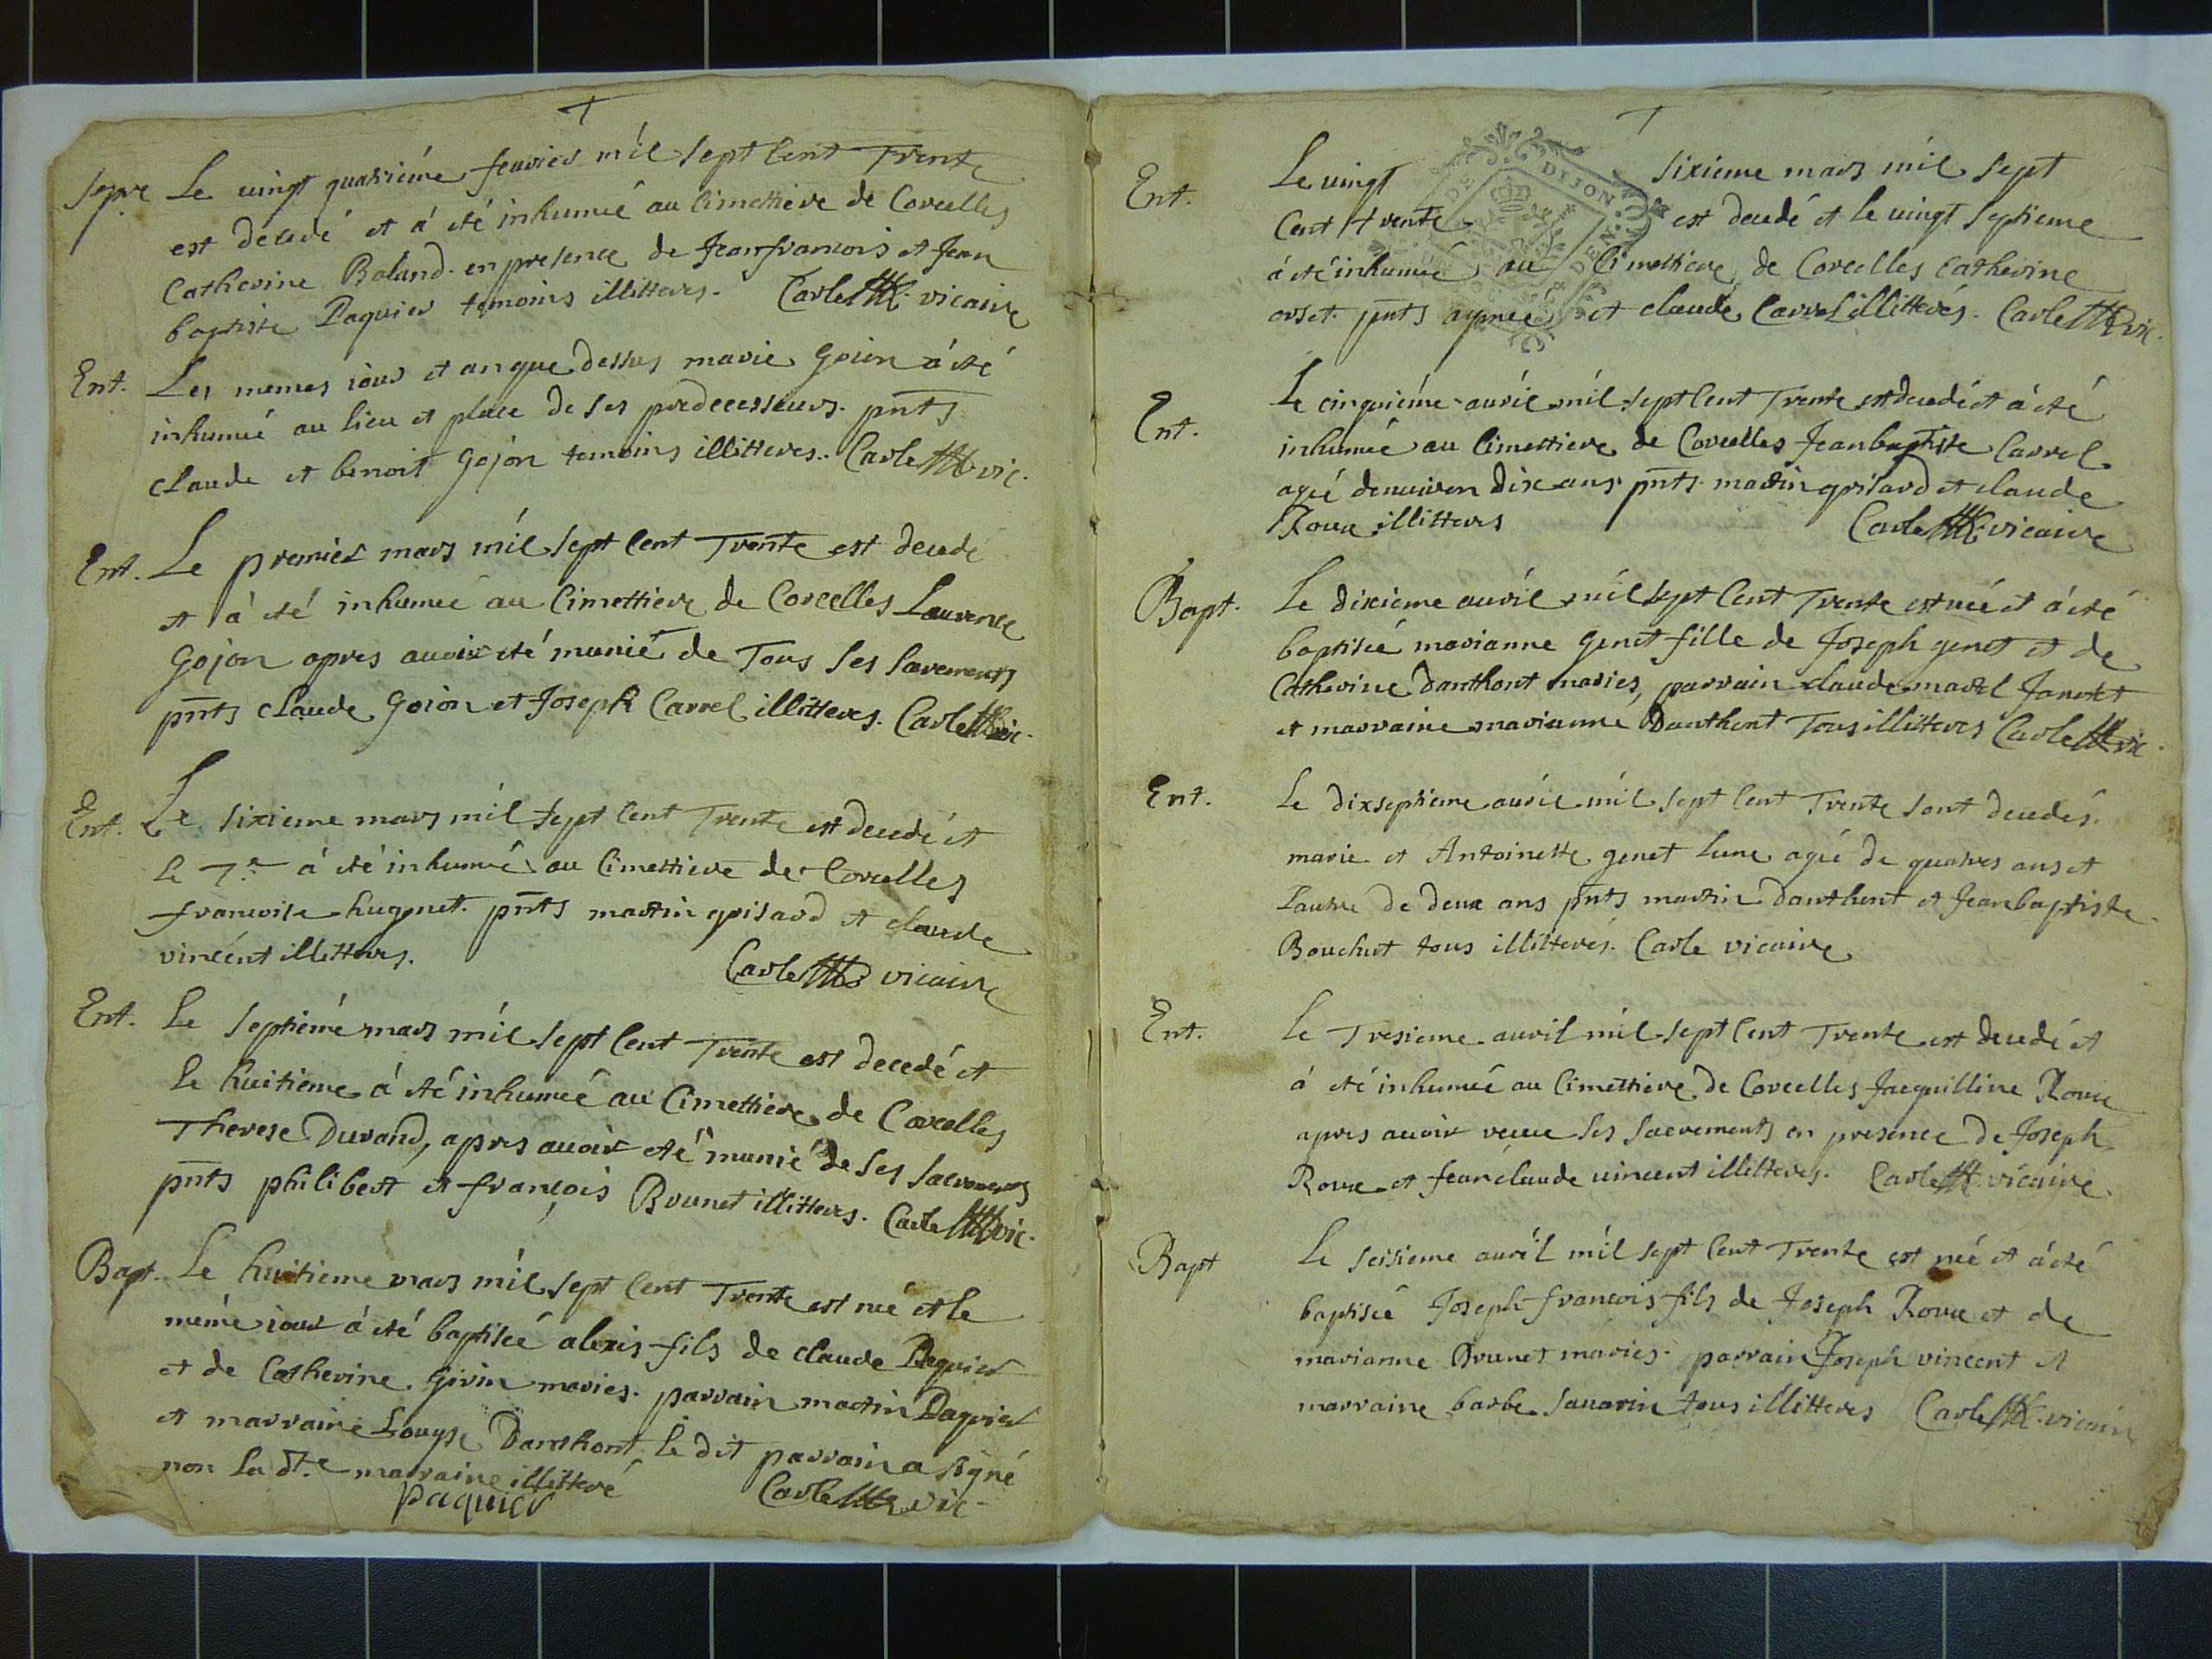 Sepre Le uingt quatriéme feurier mil sept Cent Trente
est decedé et á été inhumeé au Cimettiere de Corcelles
Catherine Boland. en presence de Jean francois et Jean
baptiste Paquier temoins illitteres. Carle vicaire
Ent. Les memes iour et an que dessus marie Goion á été
inhumeé au lieu et place de ses predecesseurs. pnts
claude et benoit Gojon temoins illitteres. Carle vic.
Ent. Le premier mars mil sept Cent Trente est decedé
et á été inhumeé au Cimettiere de Corcelles Laurence
Gojon apres auoir été munié de Tous ses sacrements
pnts claude Goion et Joseph Carrel illitteres. Carle vic.
Ent. Le sixieme mars mil sept Cent Trente est decedé et
le 7.e á été inhumeé au Cimettiere de Corcelles
francoise hugonet. pnts martin grisard et claude
vincent illitteres. Carle vicaire
Ent. Le septiéme mars mil sept Cent Trente est decedé et
le huitieme á été inhumeé au Cimettiere de Corcelles
Therese Durand, apres auoir été munié de ses sacrements
pnts philibert et françois Brunet illitteres. Carle vic.
Bapt. Le huitieme mars mil sept Cent Trente est né et le
méme iour á été baptiseé alexis fils de claude Paquier
et de Catherine Girin mariés. parrain martin Paquier
et marraine Louyse Danthont, le dit parrain a signé
non la dt.e marraine illitteré
paquier Carle vic.
DE DIJON DEN.
Ent. Le uingt sixieme mars mil sept
Cent trente est decedé et le uingt septieme
á été inhumeé au Cimettiere de Corcelles catherine
orset. pnts aymeé et claude Carrel illitterés. Carle vic.
Ent. Le cinquiéme auril mil sept Cent Trente est decedé et á été
inhumeé au Cimettiere de Corcelles Jean baptiste Carrel
ageé denuiron dix ans pnts martin grisard et claude
Roux illitteres Carle vicaire
Bapt. Le dixieme auril mil sept Cent Trente est neé et á été
baptiseé marianne genet fille de Joseph genet et de
Catherine danthont mariés, parrain claude marel Janetet
et marraine marianne Danthont Tous illitteres Carle vic.
Ent. Le dixseptieme auril mil sept Cent Trente sont decedés.
marie et Antoinette genet lune ageé de quatres ans et
Lautre de deux ans pnts martin danthont et Jean baptiste
Bouchet tous illitterés. Carle vicaire
Ent. Le Tresieme auril mil sept Cent Trente est decedé et
á été inhumeé au Cimettiere de Corcelles Jacquilline Roux
apres auoir receue ses sacrements en presence de Joseph
Roux et Jean claude uincent illitteres. Carle vicaire.
Bapt Le seisieme auril mil sept Cent Trente est né et á été
baptiseé Joseph francois fils de Joseph Roux et de
marianne Brunet mariés. parrain Joseph vincent et
marraine barbe sauarin tous illitteres Carle vicaire